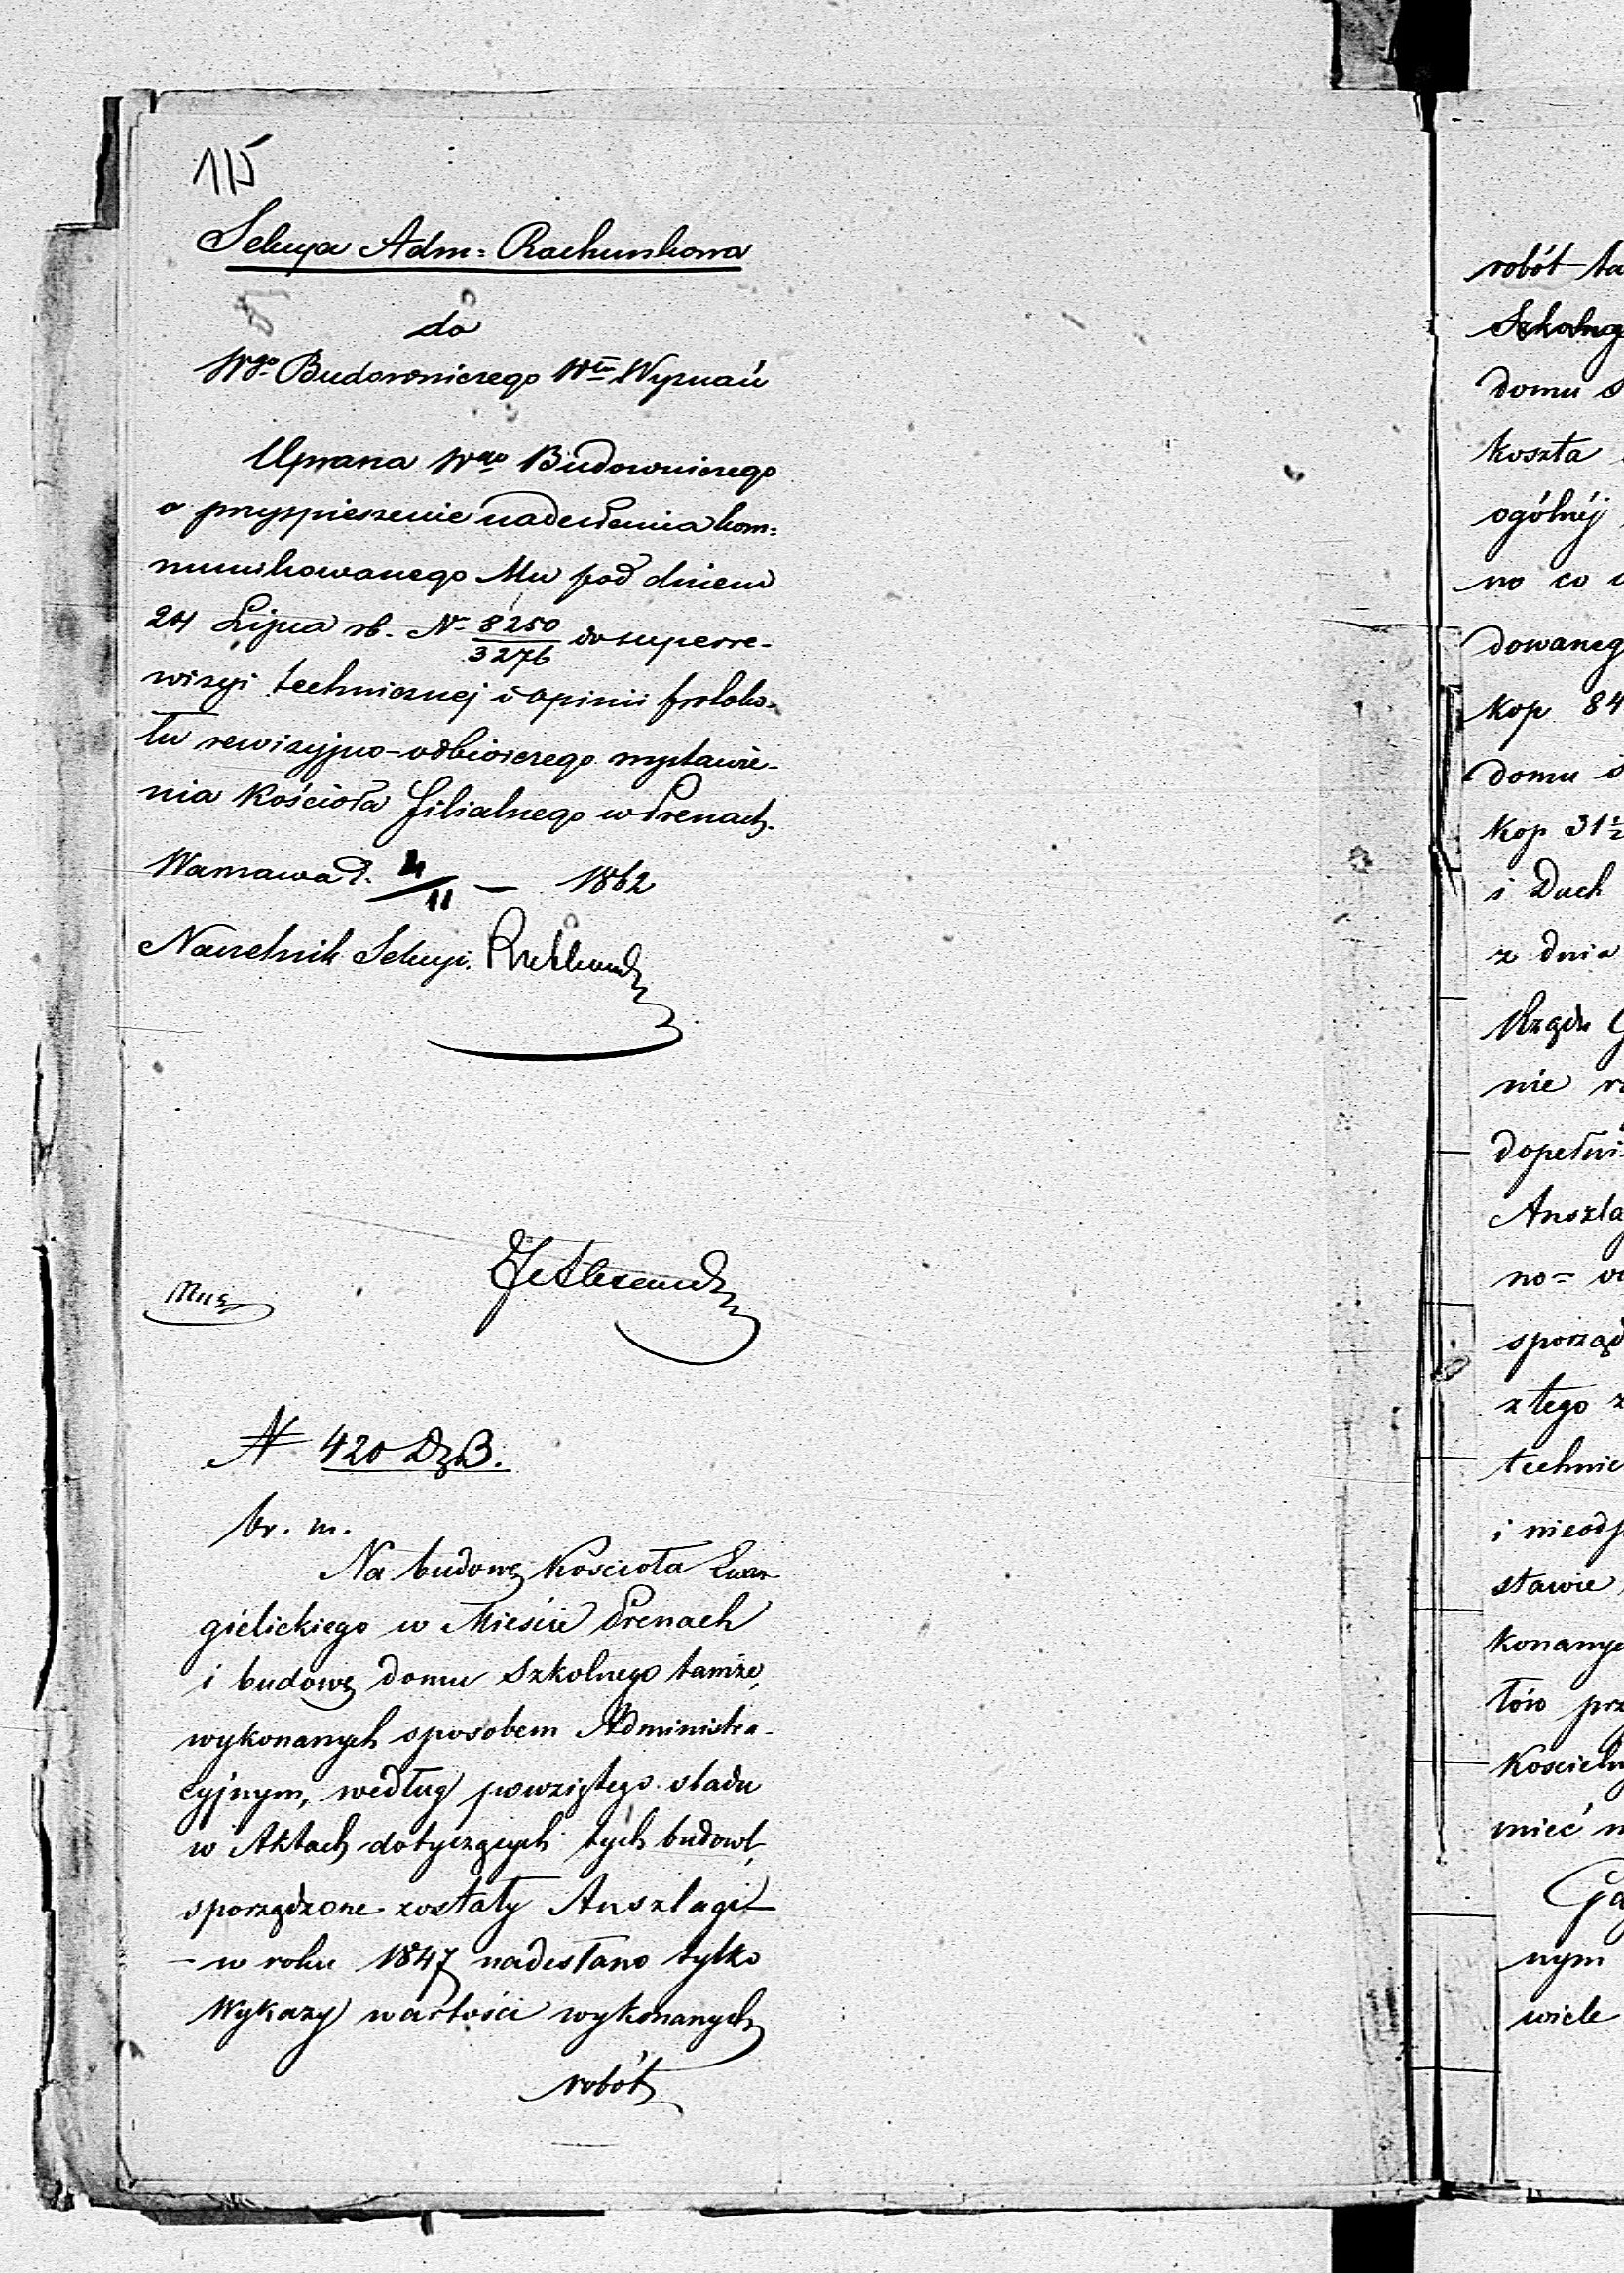 115
Sekcya Adm: Rachunkowa
do
Wgo Budowniczego Wlu Wyznań
Uprasza Wgo Budowniczego
o przyspieszenie nadesłania kom=
munikowanego Mu pod dniem
24 Lipca rb. N 8250/3276 do superre-
wizyi technicznej i opinii protoko-
łu rewizyjno-odbiorczego wystawie-
nia Kościoła filialnego w Prenach.
Warszawa d. 4/11 — 1862
Naczelnik Sekcyi
N 420 DzB.
br. m.
Na budowę Kościoła Ewan
gielickiego w Mieście Prenach
i budowę domu Szkolnego tamże,
wykonanych sposobem Administra-
cyjnym, według powziętego śladu
w Aktach dotyczących tych budowl,
sporządzone zostały Anszlagi
– w roku 1847 nadesłano tylko
Wykazy wartości wykonanych
robót
robót ta
Szkolneg
domu s
koszta
ogólnéj
no co
dowaneg
kop 84
domu
kop 31½
i Duch
z dnia
Rządu G
nie
dopełni
Anszla
no=
sporząd
z tego z
technic
i nieodp
stawie
konanyc
łów prz
Kościeln
mieć
nym
wiele